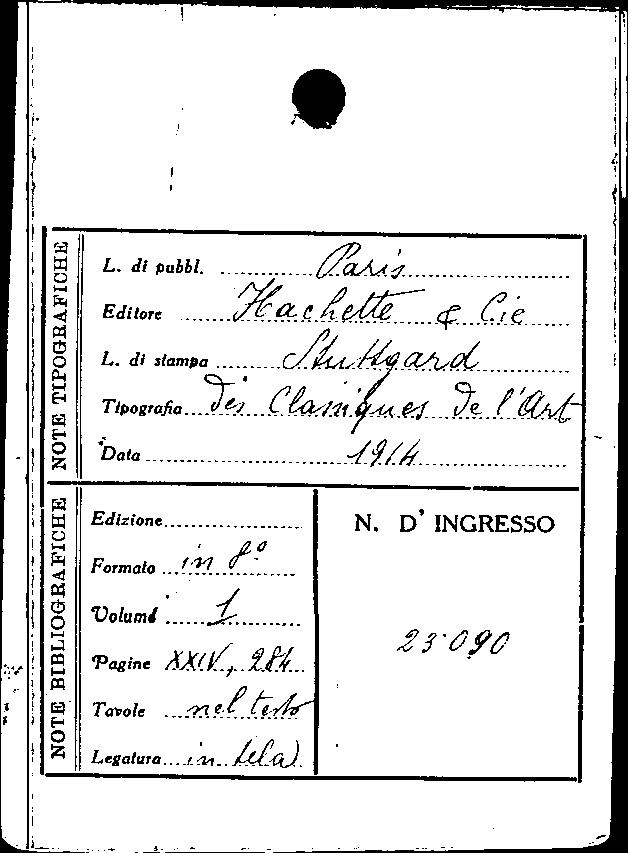 NOTE TIPOGRAFICHE
L. di pubbl. Paris
Editore Hachette & Cie
L. di stampa Stuttgard
Tipografia des Classiques de l'Art
Data 1914
NOTE BIBLIOGRAFICHE
Edizione
Formato in 8°
Volumi 1
Pagine XXIV, 284
Tavole nel testo
Legatura in tela
N. D' INGRESSO
23090